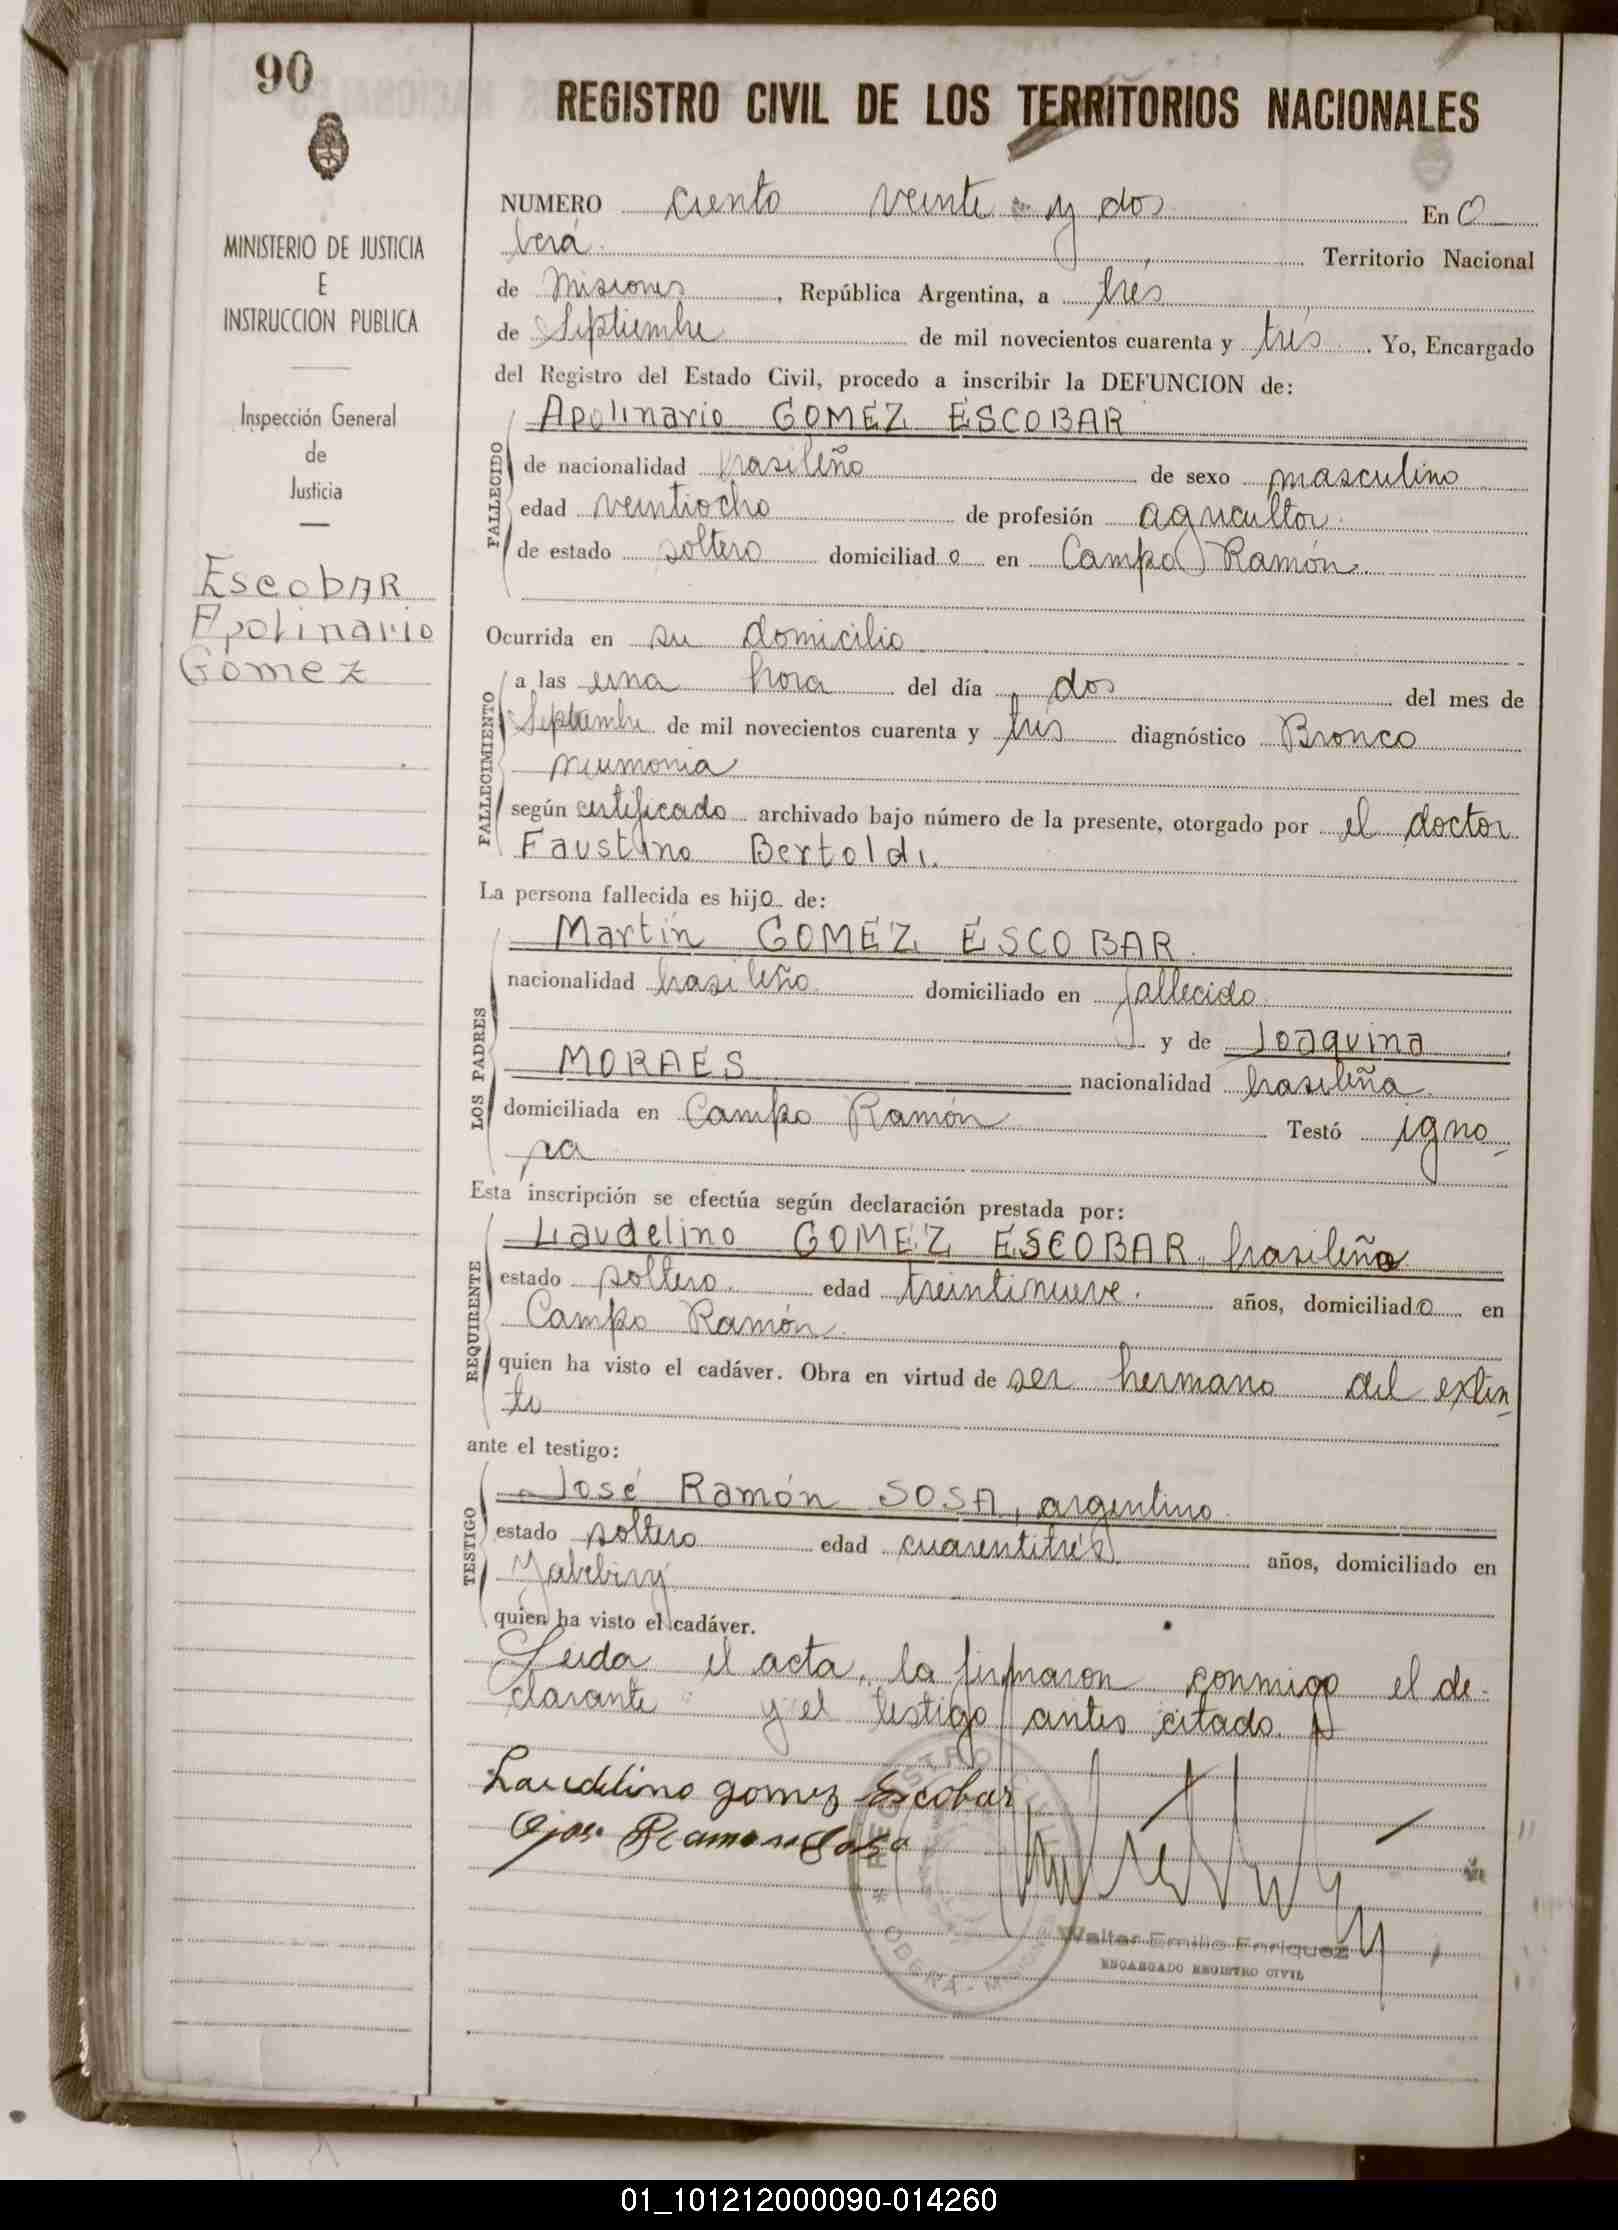 90
REGISTRO CIVIL DE LOS TERRITORIOS NACIONALES
MINISTERIO DE JUSTICIA
E
INSTRUCCION PUBLICA
Inspección General
de
Justicia
EscobAR
Apolinario
Gomez
NUMERO ciento veinte y dos En O
berá. Territorio Nacional
de Misiones, República Argentina, a trés
de Septiembre de mil novecientos cuarenta y trés. Yo, Encargado
del Registro del Estado Civil, procedo a inscribir la DEFUNCION de:
Apolinario GOMEZ ESCOBAR
FALLECIDO
de nacionalidad brasileño de sexo masculino
edad veintiocho de profesión agricultor.
de estado soltero domiciliado en Campo Ramón.
Ocurrida en su domicilio
FALLECIMIENTO
a las una hora del día dos del mes de
Septiembre de mil novecientos cuarenta y trés diagnóstico Bronco
neumonia
según certificado archivado bajo número de la presente, otorgado por el doctor
Faustino Bertoldi.
La persona fallecida es hijo de:
LOS PADRES
Martín GOMEZ ESCOBAR.
nacionalidad brasileño domiciliado en fallecido
y de Joaquina
MORAES nacionalidad brasileña
domiciliada en Campo Ramón Testó igno-
ra
Esta inscripción se efectúa según declaración prestada por:
REQUIRENTE
Laudelino GOMEZ ESCOBAR, brasileño
estado soltero. edad treintinueve. años, domiciliado en
Campo Ramón.
quien ha visto el cadáver. Obra en virtud de ser hermano del extin-
to
ante el testigo:
TESTIGO
José Ramón SOSA, argentino
estado soltero edad cuarentitrés años, domiciliado en
Yabebiry
quien ha visto el cadáver.
Leida el acta, la firmaron conmigo el de-
clarante y el testigo antes citado.
Laudelino gomez Escobar
Jose Ramon Sosa
REGISTRO CIVIL
* OBERA - MISIONES
Walter Emilio Enriquez
ENCARGADO REGISTRO CIVIL
01_101212000090-014260